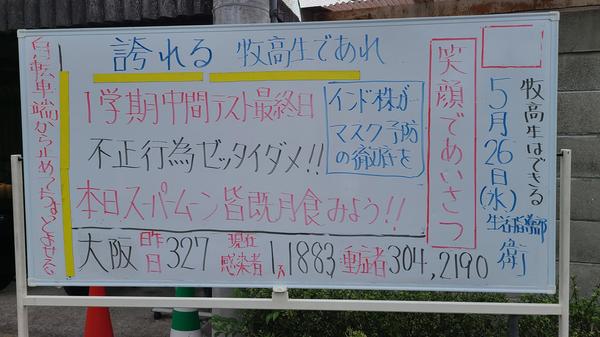 牧高生はできる
5月26日(水)
生活指導部 衛
笑顔であいさつ
誇れる 牧高生であれ
1学期中間テスト最終日
不正行為ゼッタイダメ!!
インド株が
マスク予防
の徹底を
本日スーパームーン皆既月食みよう!!
大阪 昨日 327 現在感染者 1,1883 重症者 304,2190
自転車端から止めてちゃんとそろえる